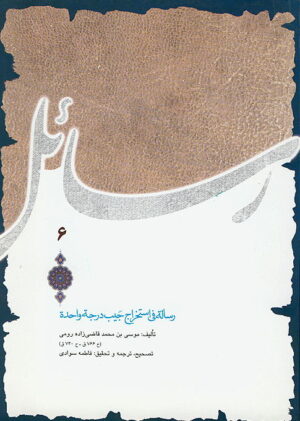 رسائل
۶
رسالة فی استخراج جیب درجة واحدة
تألیف: موسی بن محمد قاضی‌زاده رومی
(ح ۷۶۶ ق - ح ۸۴۰ ق)
تصحیح، ترجمه و تحقیق: فاطمه سوادی